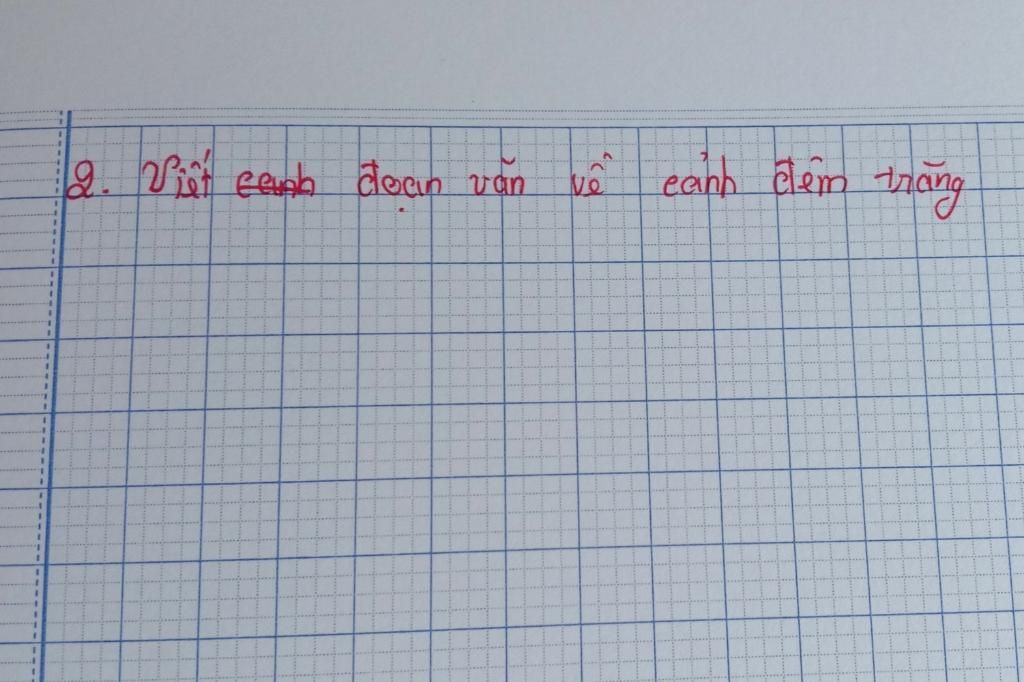 2. Viết cảnh đoạn văn về cảnh đêm trăng